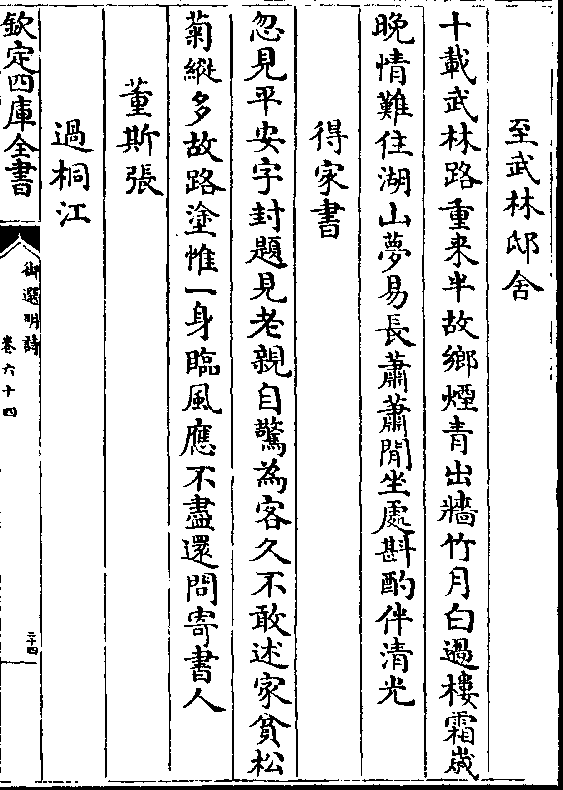 至武林邸舍
十載武林路重来半故鄉煙青出牆竹月白過樓霜歲
晚情難住湖山夢易長蕭蕭閒坐處斟酌伴清光
得家書
忽見平安字封題見老親自驚為客久不敢述家貧松
菊縱多故路塗惟一身臨風應不盡還問寄書人
董斯張
過桐江
欽定四庫全書
御選明詩
卷六十四
三十四